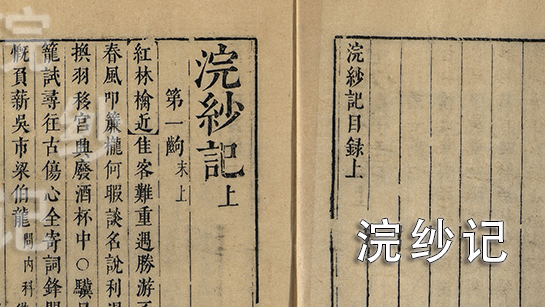 浣紗記目錄上
浣紗記 上
第一齣 末上
紅林檎近 佳客難重遇勝游不
春風叩簾櫳何暇談名說利漫
換羽移宮典廢酒杯中○驥
籠試尋往古傷心全寄詞鋒
慨負薪吳市梁伯龍 問內科
浣纱记
浣纱记